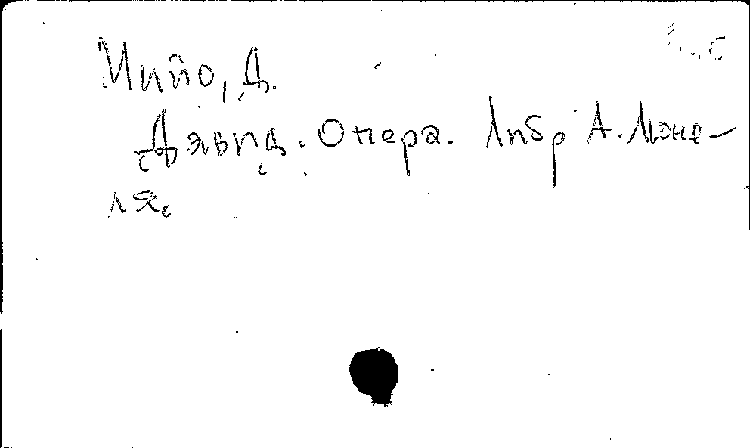 Мийо, Д.
Давид. Опера. Либр А. Люне-
ля.